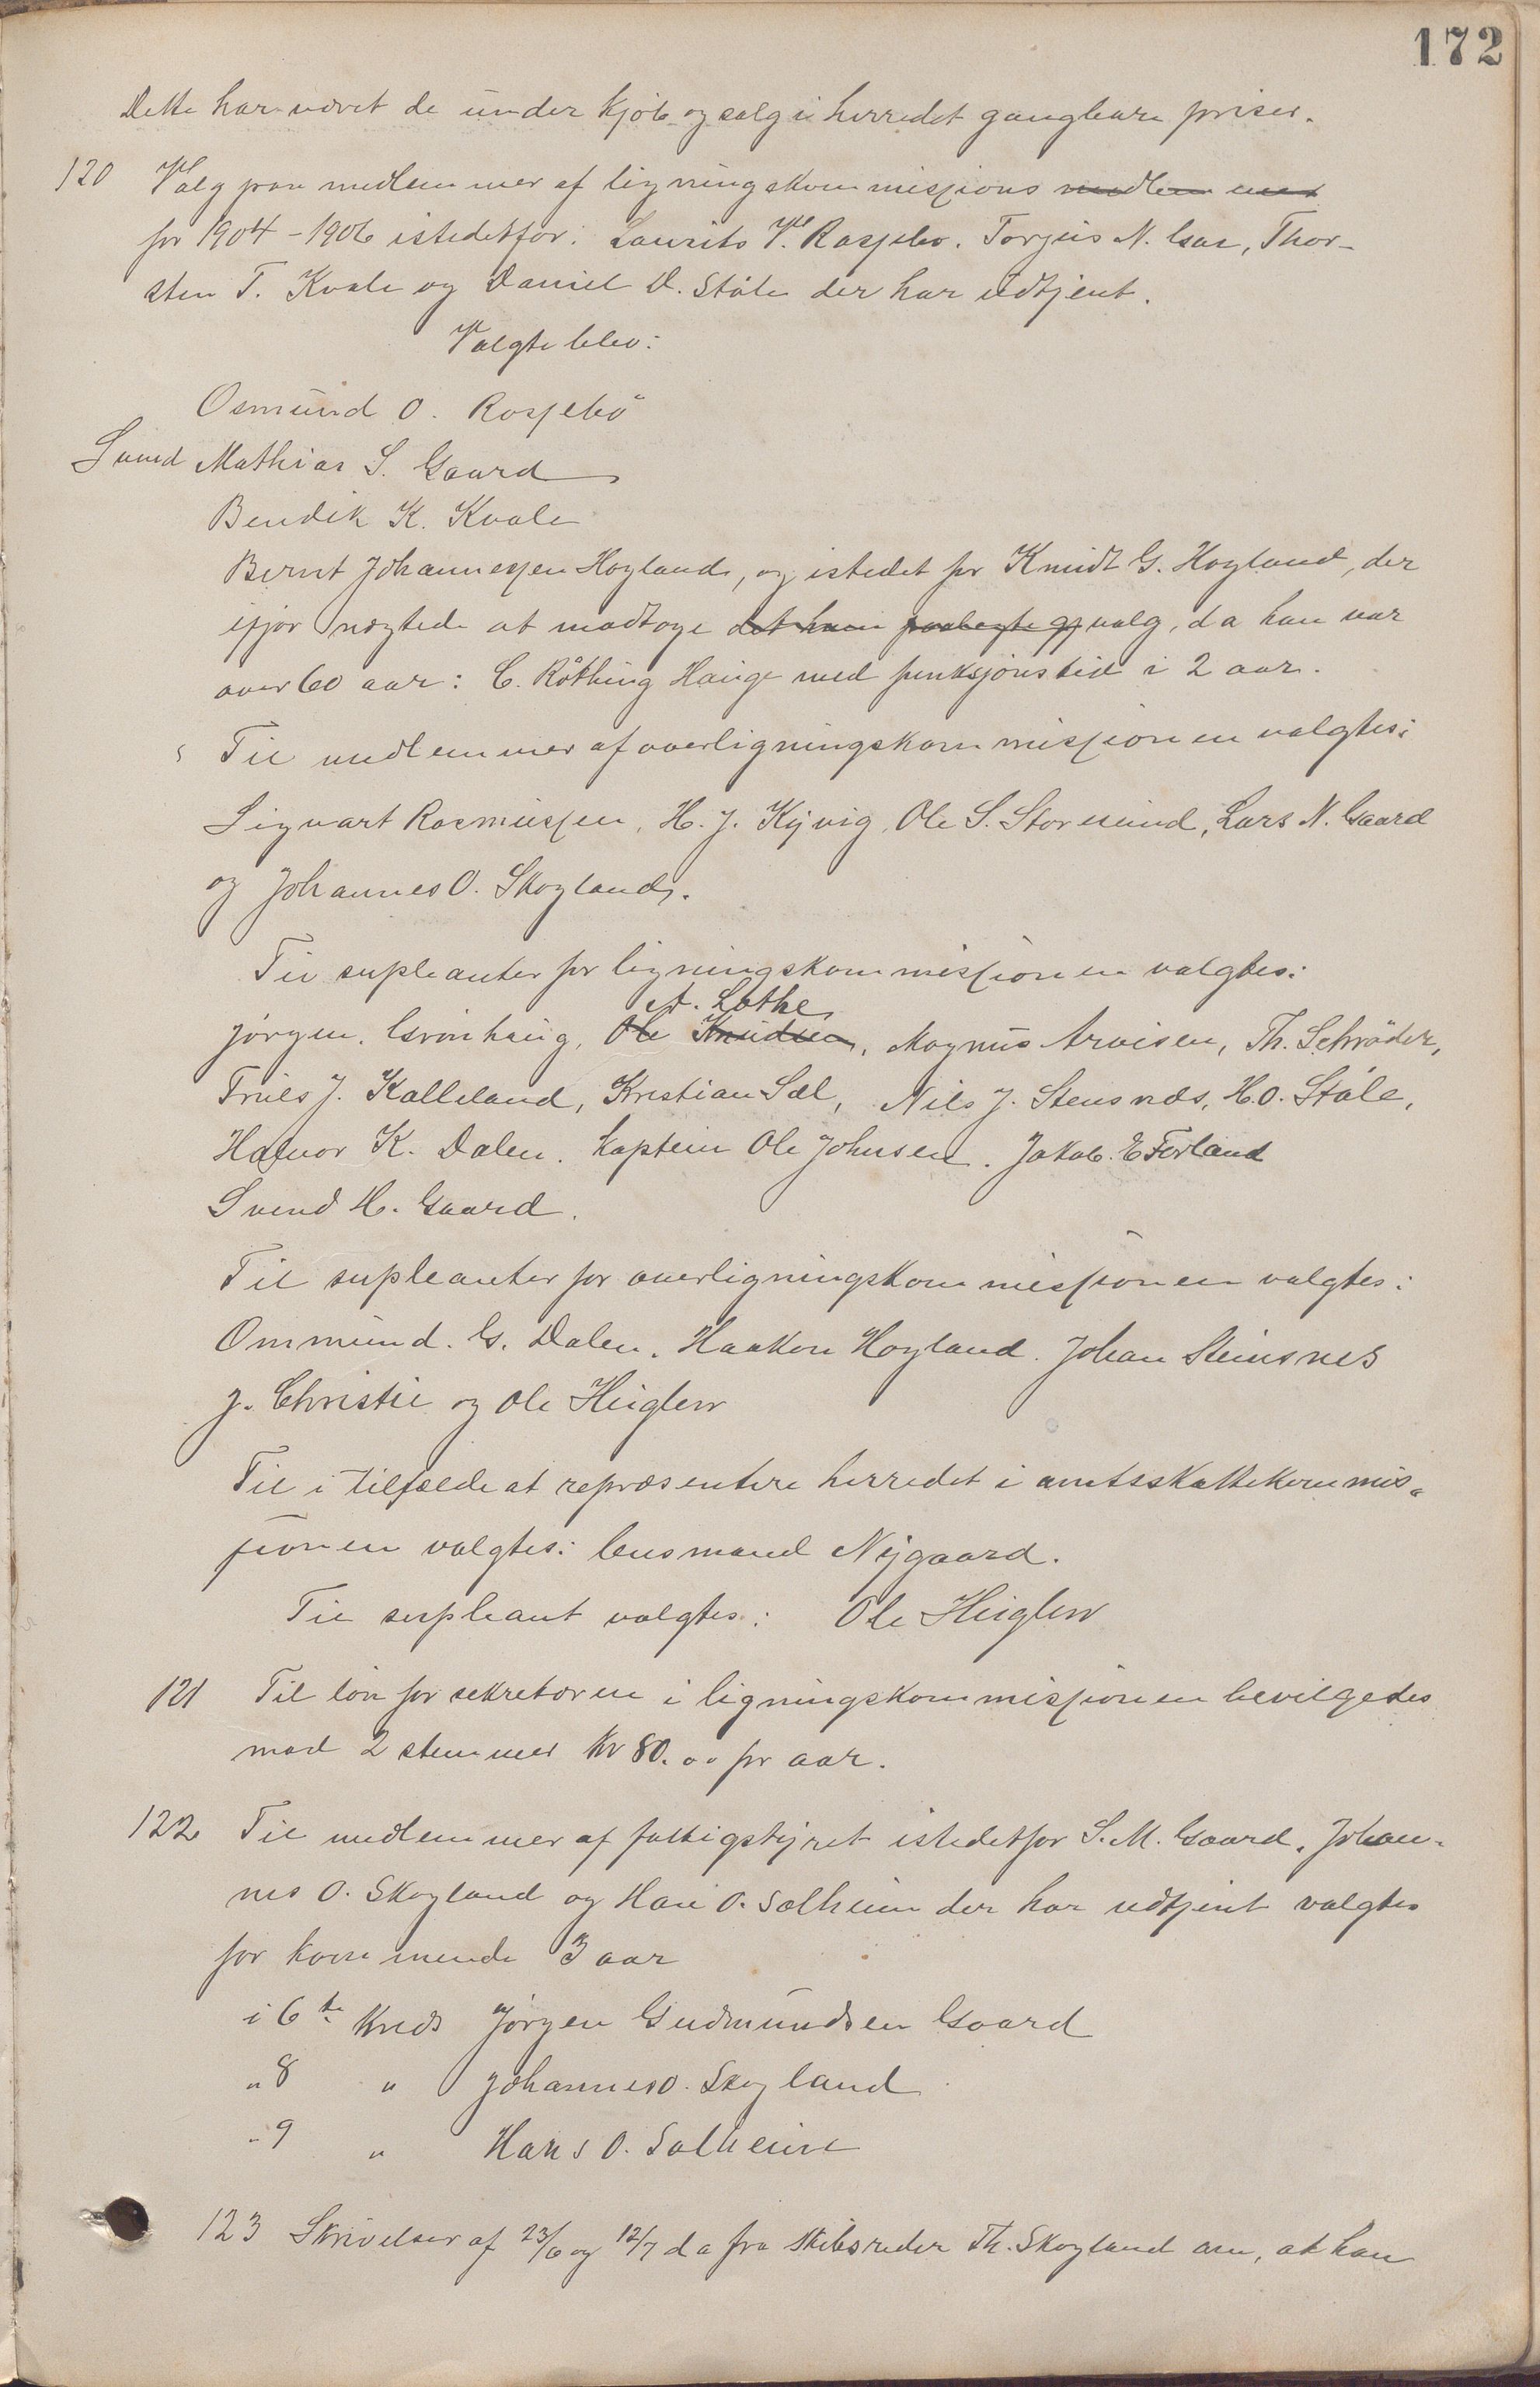 172
Dette har været de under kjøb og salg i herredet gangbare priser.
120 Valg paa medlemmer af ligningskommissions medlemmer
for 1904-1906 istedetfor: Laurits V. Rossebø. Torgius N. Gaa, Thor-
sten T. Kvale og Daniel D. Ståle der har udtjent.
Valgte blev:
Osmund O. Rossebö
Svend Mathias S. Gaard
Bendik K. Kvale
Bernt Johannessen Høyland, og istedet for Knudt G. Høyland, der
ifjor nægtede at modtage det ham paalagte valg, da han var
over 60 aar: C. Røthing Hauge med funksjonstid i 2 aar.
Til medlemmer af overligningskommissionen valgtes:
Sigvart Rasmussen, H. J. Kyvig, Ole S. Storesund, Lars N. Gaard
og Johannes O. Skogland.
Til supleanter for ligningskommissionen valgtes:
A. Lothe
Jørgen Grönhaug, Ole Knudsen, Magnus Arvesen, Th. Schröder,
Truls J. Kalleland, Kristian Sæl, Nils J. Stensnæs, H.O. Ståle,
Halvor K. Dalen. kaptein Ole Johnsen. Jakob E Førland
Svend H. Gaard.
Til supleanter for overligningskommissionen valgtes:
Ommund G. Dalen, Haakon Høyland. Johan Steinsnes
J. Christie og Ole Hiigler
Til i tilfælde at repræsentere herredet i amtsskattekommis-
sionen valgtes: lensmand Nygaard.
Til supleant valgtes: Ole Hiigler
121 Til løn for sekretæren i ligningskommissionen bevilgedes
mod 2 stemmer Kr 80.00 pr aar.
122 Til medlemmer af fattigstyret istedetfor S. M. Gaard, Johan-
nes O. Skogland og Hans O. Solheim der har udtjent valgtes
for kommende 3 aar
i 6te Kreds Jørgen Gudmundsen Gaard
" 8 " Johannes O. Skogland
" 9 " Hans O. Solheim
123 Skrivelser af 23/6 og 12/7 d a fra skibsreder Th. Skogland om, at han